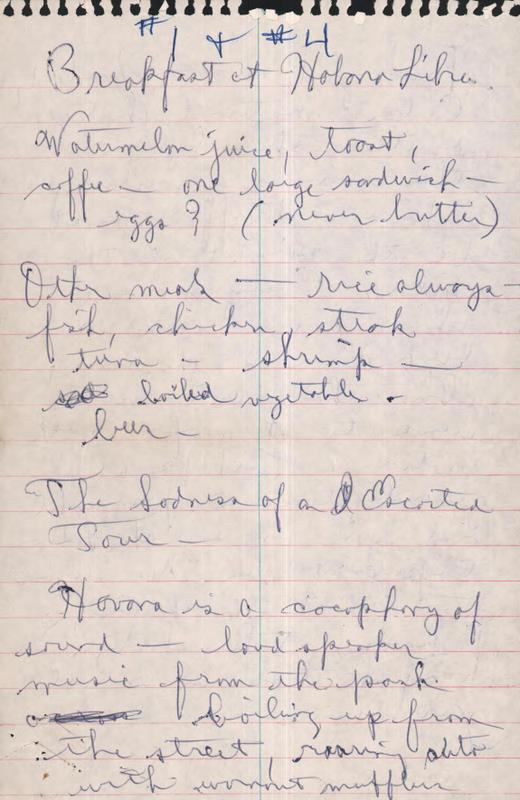 #1 & #4
Breakfast at Habana Libre.
Watermelon juice, toast,
coffee — one large sandwich —
eggs? (never butter)
Other meals — rice always —
fish, chicken, steak
tuna - shrimp —
boiled vegetables.
beer —
The Sadness of an Escorted
Tour —
Havana is a cacophony of
sound — loud speaker
music from the park
boiling up from
the street, roaring auto
with wornout mufflers